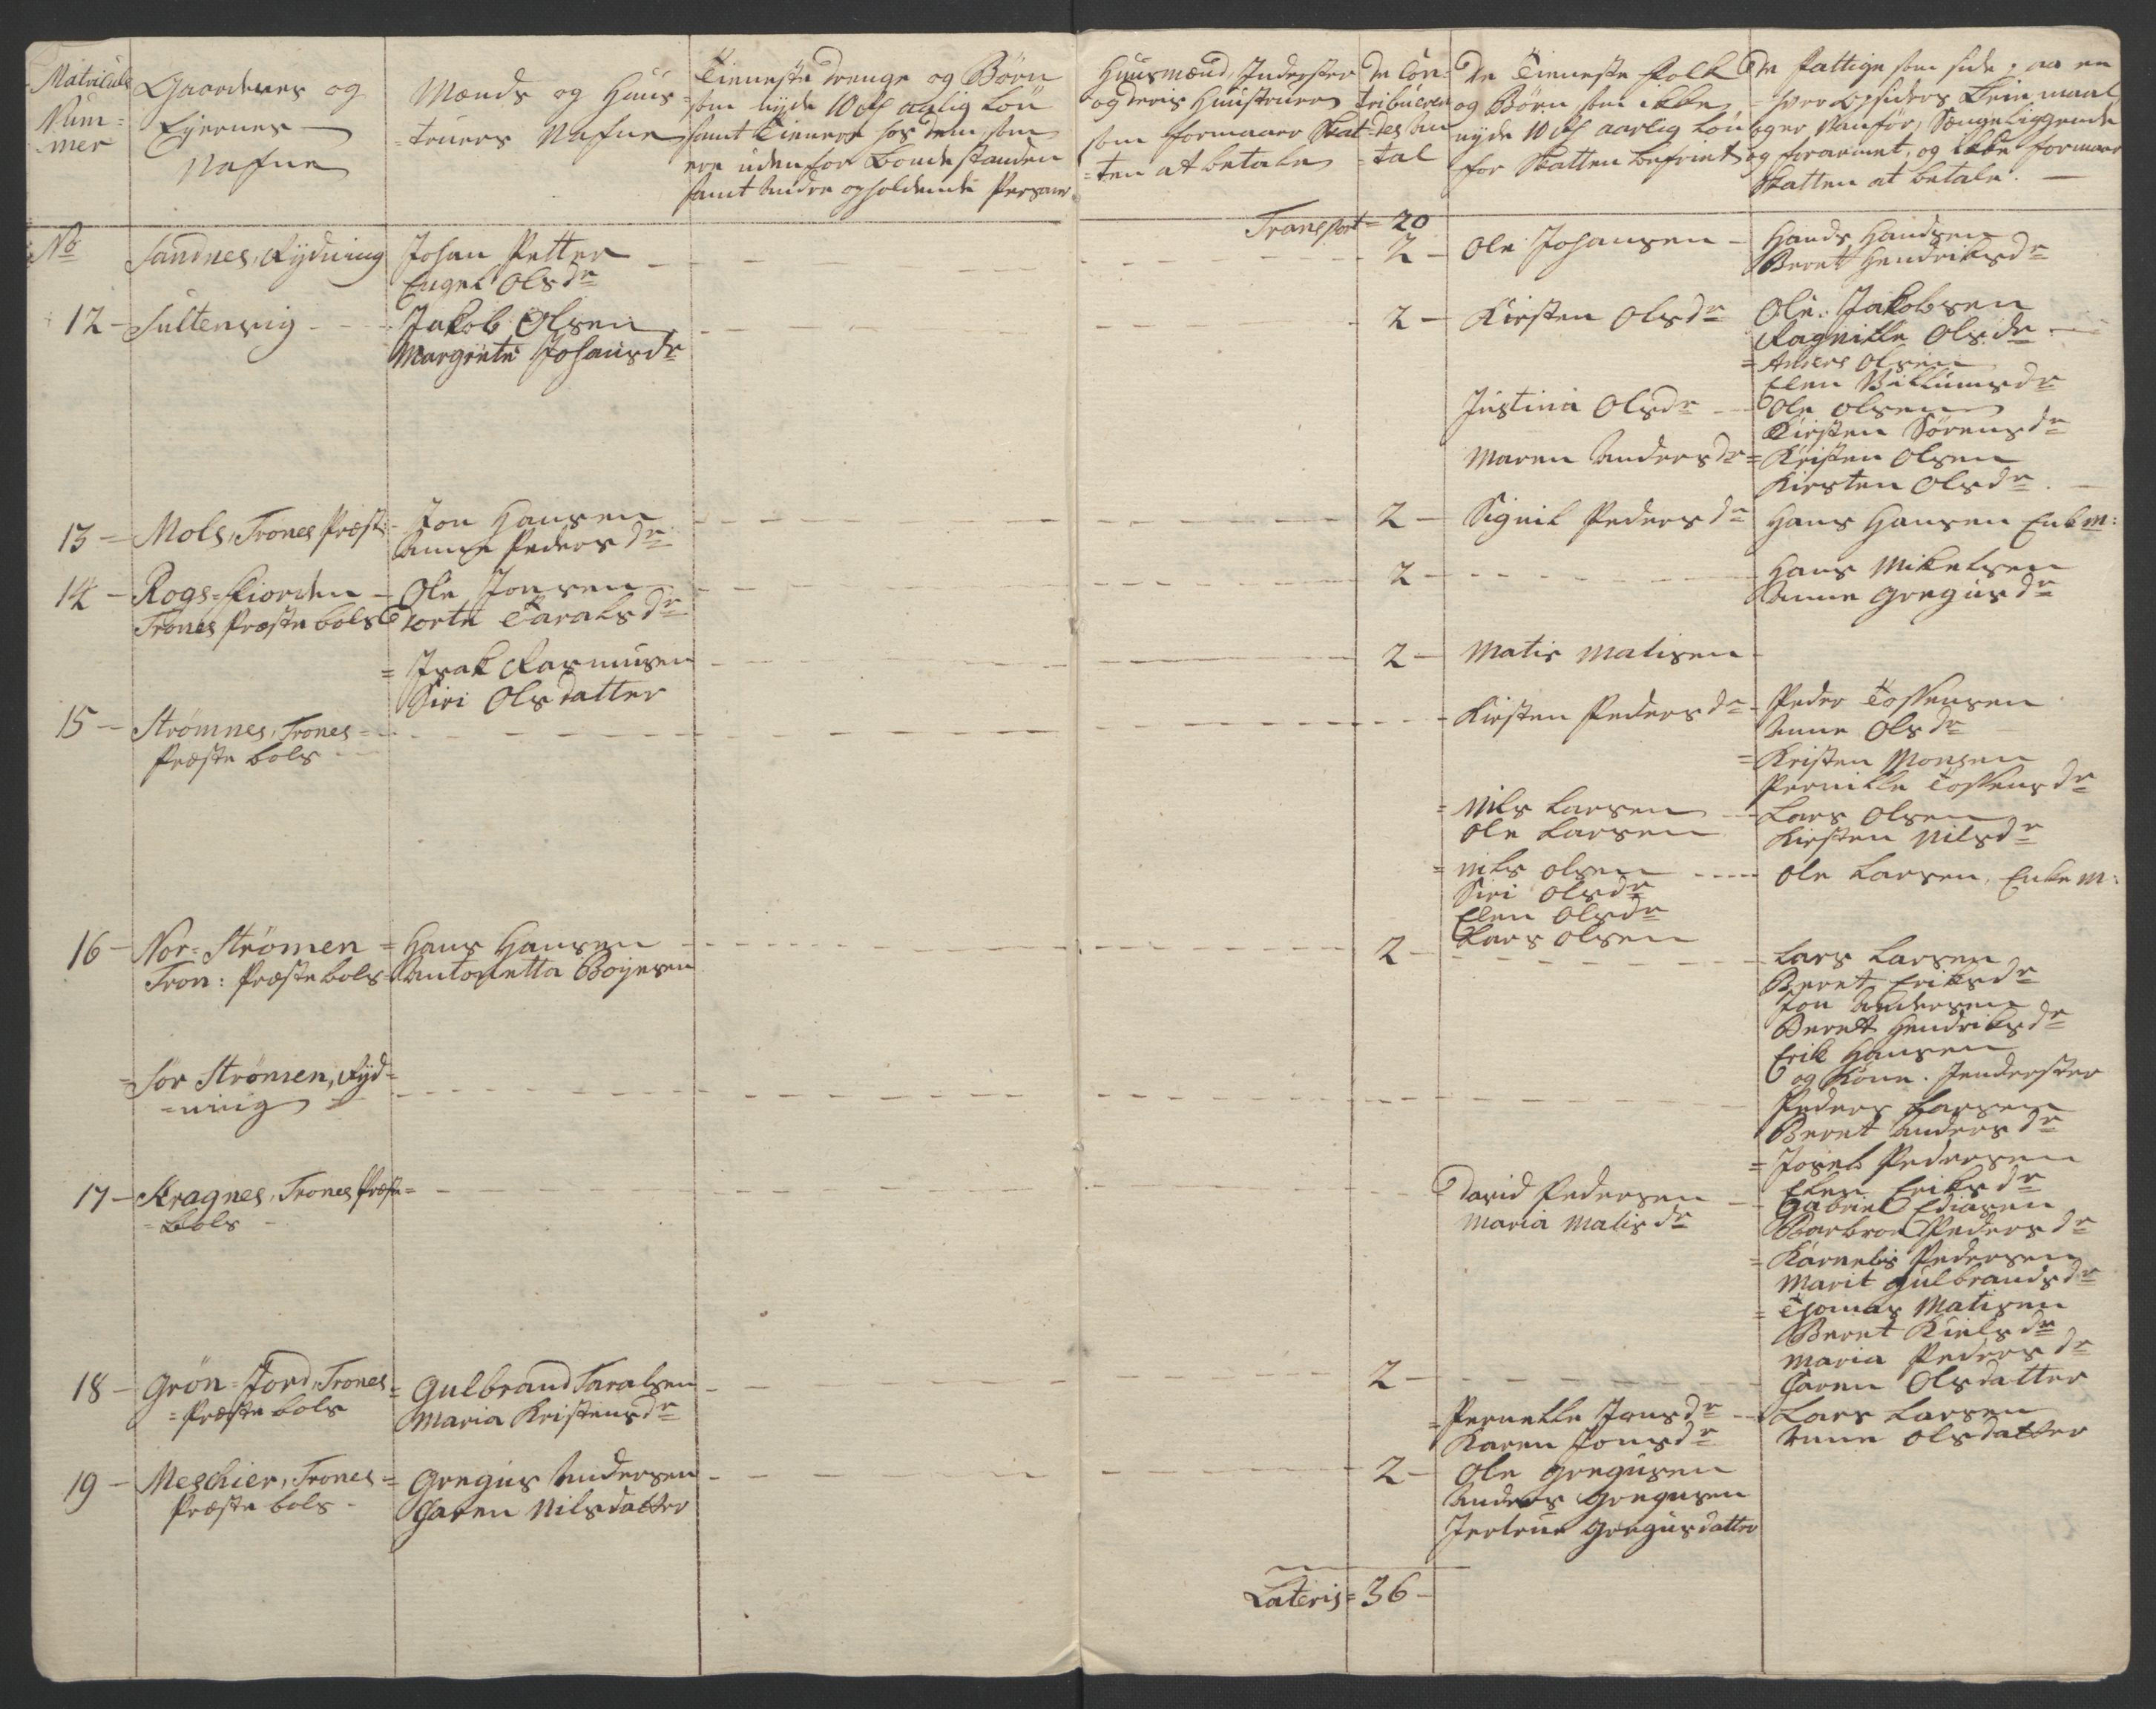 Matricule
Num=
mer
Gaardenes og
Ejernes
Nafne
Mænds og Huus=
=truers Nafne
Tienneste drenge og Børn
som nyde 10 aarlig Løn
samt Tiennere hos dem, som
ere uden for Bondestanden
samt Andre opholdende Personer
Huusmænd, Inderster
og deris Huustruer
som formaaer Skat=
=ten at betale
De Con=
tribueren
des An
=tal
De Tienneste Folk
og Børn som ikke
nyde 10 aarlig Løn
for Skatten befriet
De fattige som side paa en
Vanfør, Sengeliggende
og forarmet, og ikke formaar
Skatten at betale.
Transport = 20
No
Sandnes, Rydning
Johan Petter
Engel Olsdr
2 -
Ole Johansen -
Hands Handsen
Beret Hendriksdr
12 - Sultenvig - -
Jakob Olsen
Margrete Johansdr
2 -
Kirsten Olsdr
Ole Jakobsen
Ragnille Olsdr
= Anders Olsen
Elen Villumsdr
Justina Olsdr -
Ole Olsen
Kirsten Sörensdr
Maren Andersdr
= Kristen Olsen
Kirsten Olsdr
13 = Mols, Trones Præst:
Jon Hansen
Anne Pedersdr
2 -
Signil Pedersdr
Hans Hansen Enkm:
14 - Rogs=fiorden -
Trones Præste bols
Ole Jonsen
Dorte Taralsdr
2 -
Hans Mikelsen
Anne Gregusdr
= Isak Rasmusen
Siri Olsdatter
2 -
Matis Matisen
15 - Strömnes, Trones
Præste bols
Kirsten Pedersdr
Peder Tostensen
Anne Olsdr
= Kristen Monsen
Pernille Tostensdr
= Nils Larsen
Ole Larsen
Lars Olsen
Kirsten Nilsdr
= Nils Olsen
Siri Olsdr
Elen Olsdr
Lars Olsen
Ole Larsen, Enkem:
16 - Nor=Strömen =
Tron: Præste bols
Hans Hansen
Antonetta Boyesen
2 -
Lars Larsen
Beret Eriksdr
Jon Andersen
Beret Hendriksdr
Erik Hansen
og Kone. Jnderster
= Sör Strömen, Ryd=
=ning
Peder Larsen
Beret Andersdr
17 - Kragnes, Trones Præste=
= bols -
= Joseb Pedersen
Elen Eriksdr
David Pedersen
Maria Matisdr
Gabriel Ediasen
Barbroe Pedersdr
= Karnelis Pedersen
Marit Gulbrandsdr
= Thomas Matisen
Beret Kielsdr
Maria Pedersdr
18 - Grön=Jord, Trones
= Præste bols
Gulbrand Taralsen
Maria Kristensdr
2 -
Caren Olsdatter
= Pernelle Jonsdr
Karen Jonsdr
Lars Larsen
Anne Olsdatter
19 - Meshier, Trones =
Præste bols -
Gregus Andersen
Caren Nilsdatter
2 -
Ole Gregusen
Anders Gregusen
Jertrue Gregusdatter
Lateris = 36 -